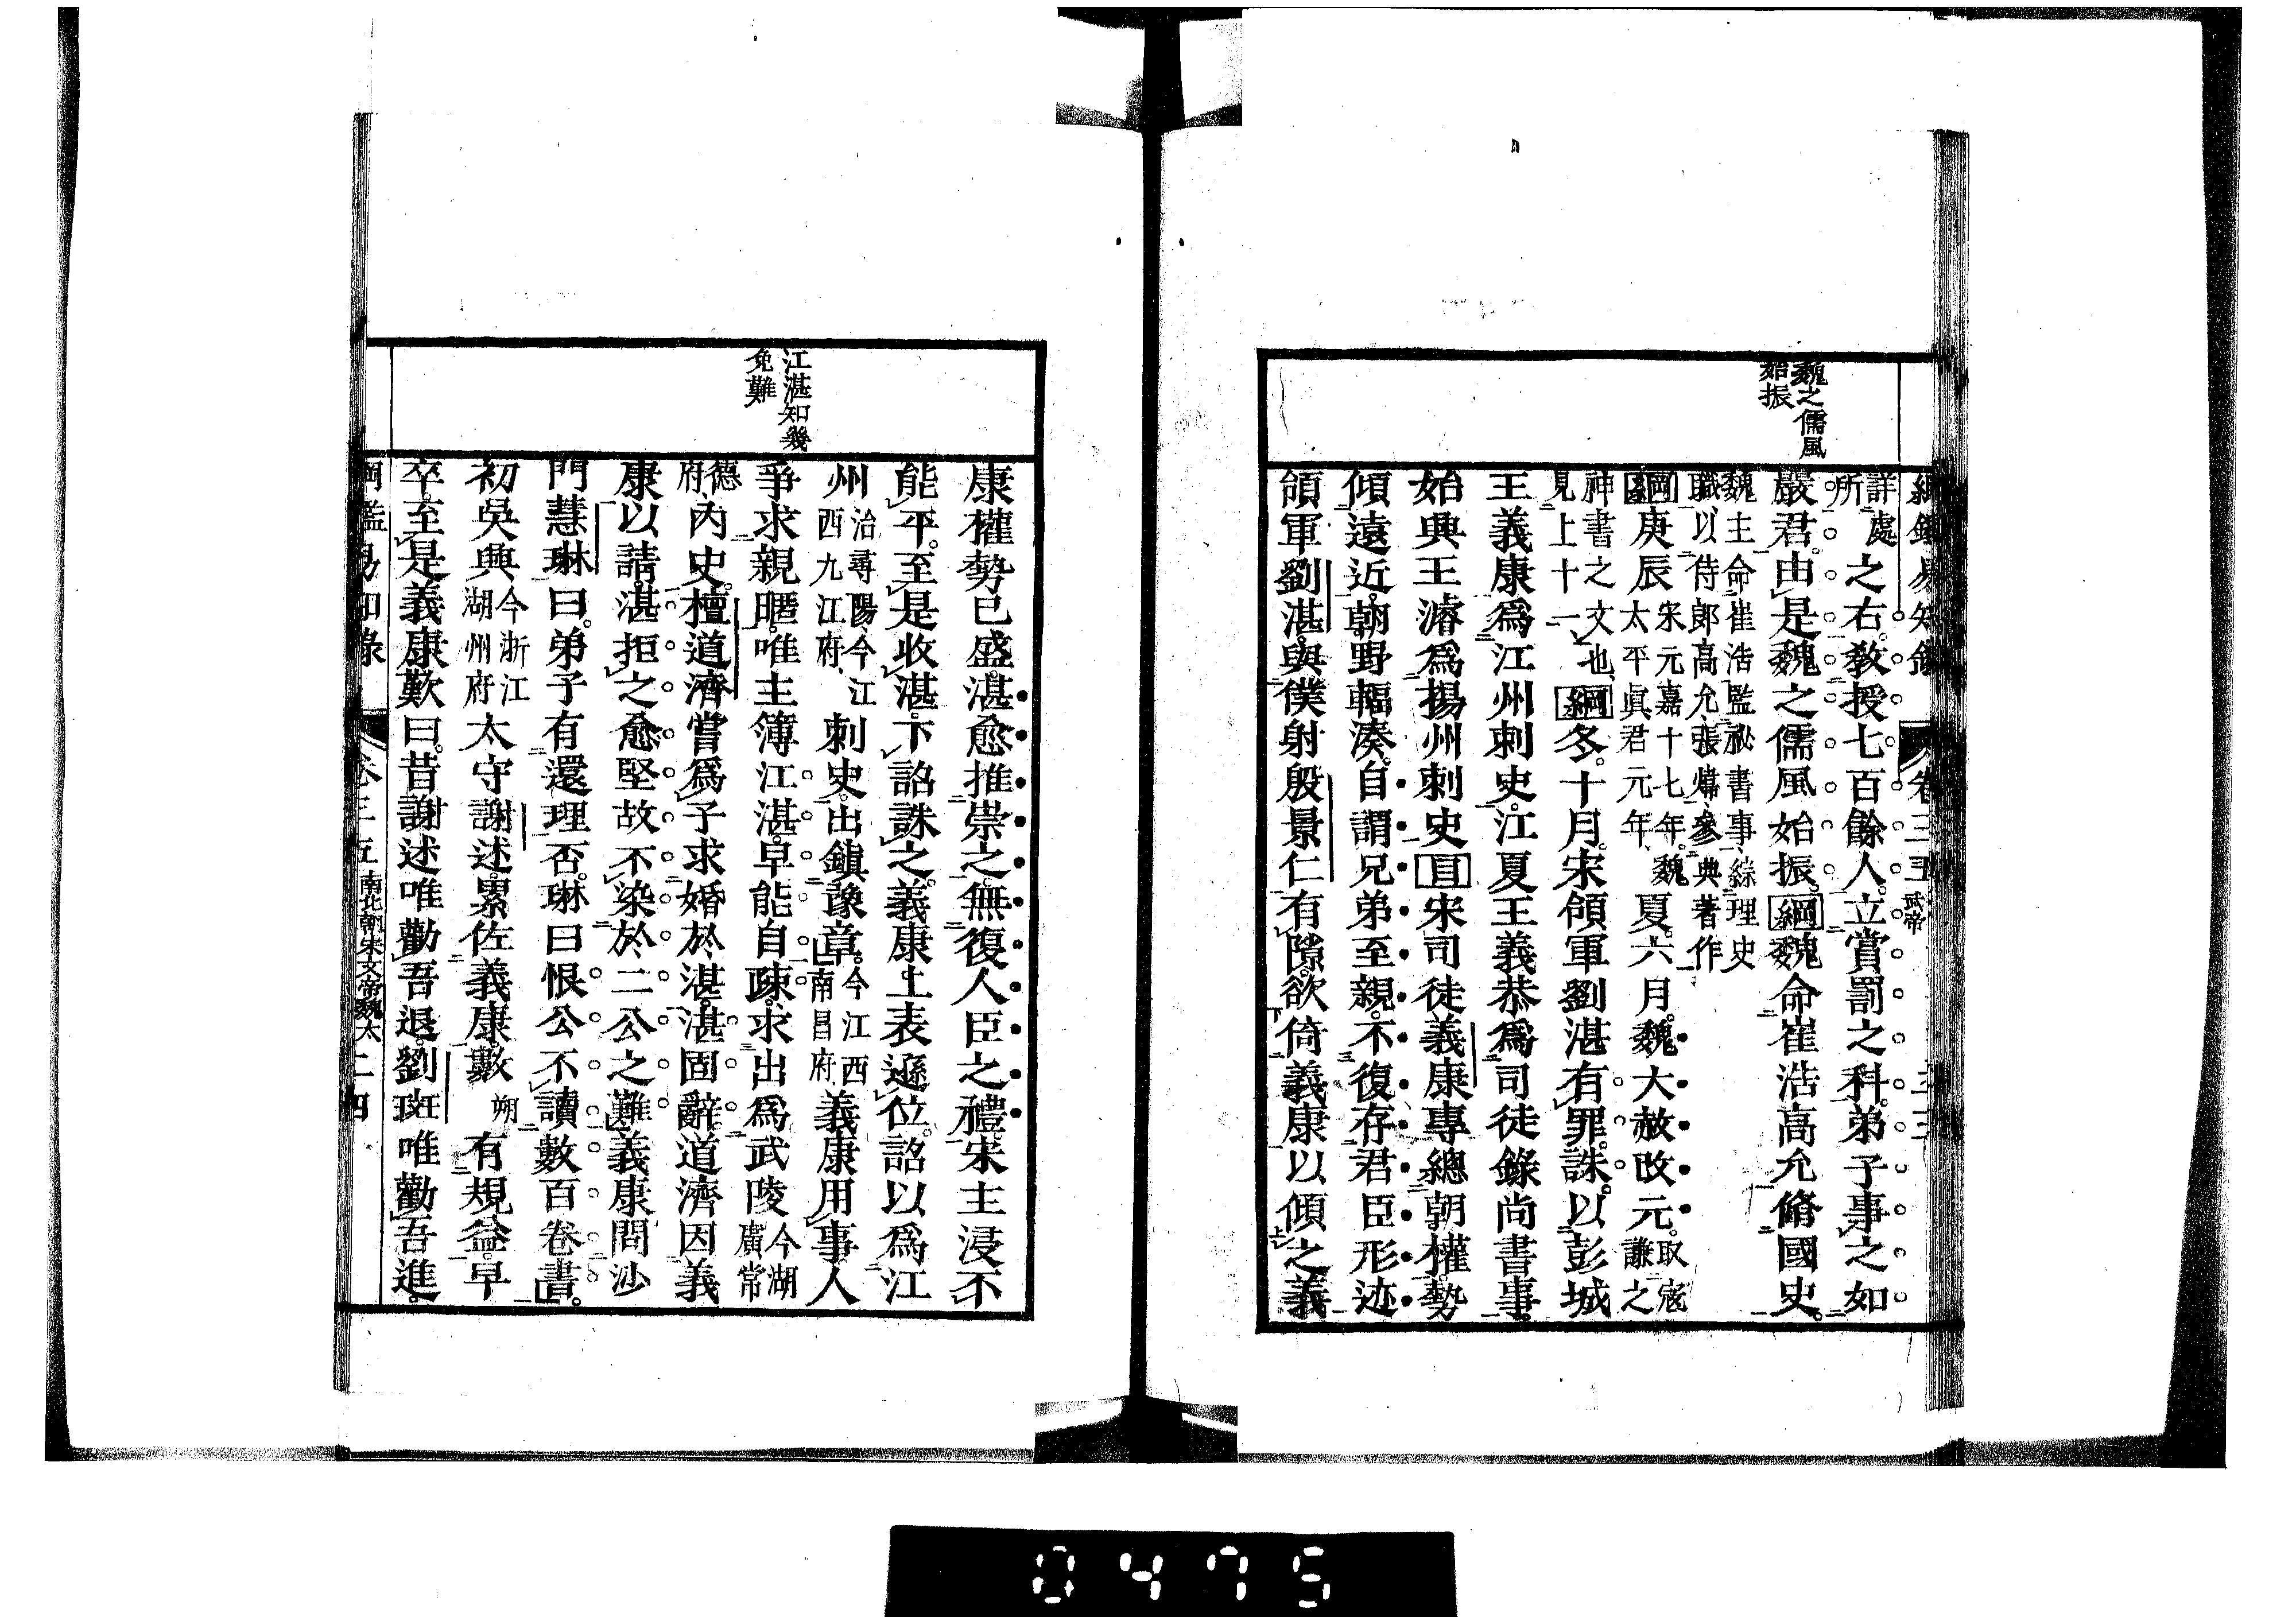 魏之儒風
始振
詳處
所
之右。教授七百餘人。立賞罰之科。弟子事之如
嚴君。由是魏之儒風始振。綱魏命崔浩高允脩國史。
魏主命崔浩監祕書事、綜理史
職、以侍郎高允、張煒、參典著作
綱庚辰宋元嘉十七年。魏
太平眞君元年、
夏。六月。魏大赦改元。取寇
謙之
神書之文也、
見上十一、
綱冬。十月。宋領軍劉湛有罪。誅。以彭城
王義康爲江州刺史。江夏王義恭爲司徒錄尚書事。
始興王濬爲揚州刺史目宋司徒義康專總朝權。勢
傾遠近。朝野輻湊。自謂兄弟至親。不復存君臣形迹
領軍劉湛。與僕射殷景仁有隙。欲倚義康以傾之義
江湛知幾
免難
康權勢已盛。湛愈推崇之。無復人臣之禮。宋主浸不
能平。至是收湛。下詔誅之。義康上表遜位。詔以爲江
州治尋陽、今江
西九江府、
刺史。出鎭豫章。今江西
南昌府、
義康用事人
爭求親暱。唯主簿江湛。早能自疎。求出爲武陵今湖
廣常
德
府、
內史。檀道濟嘗爲子求婚於湛。湛固辭。道濟因義
康以請。湛拒之愈堅故不染於二公之難義康問沙
門慧琳曰。弟子有還理否。琳曰恨公不讀數百卷書。
初吳興今浙江
湖州府
太守謝述。累佐義康。數朔
有規益。早
卒。至是義康歎曰。昔謝述唯勸吾退。劉斑唯勸吾進。
南北朝宋文帝魏太
二四